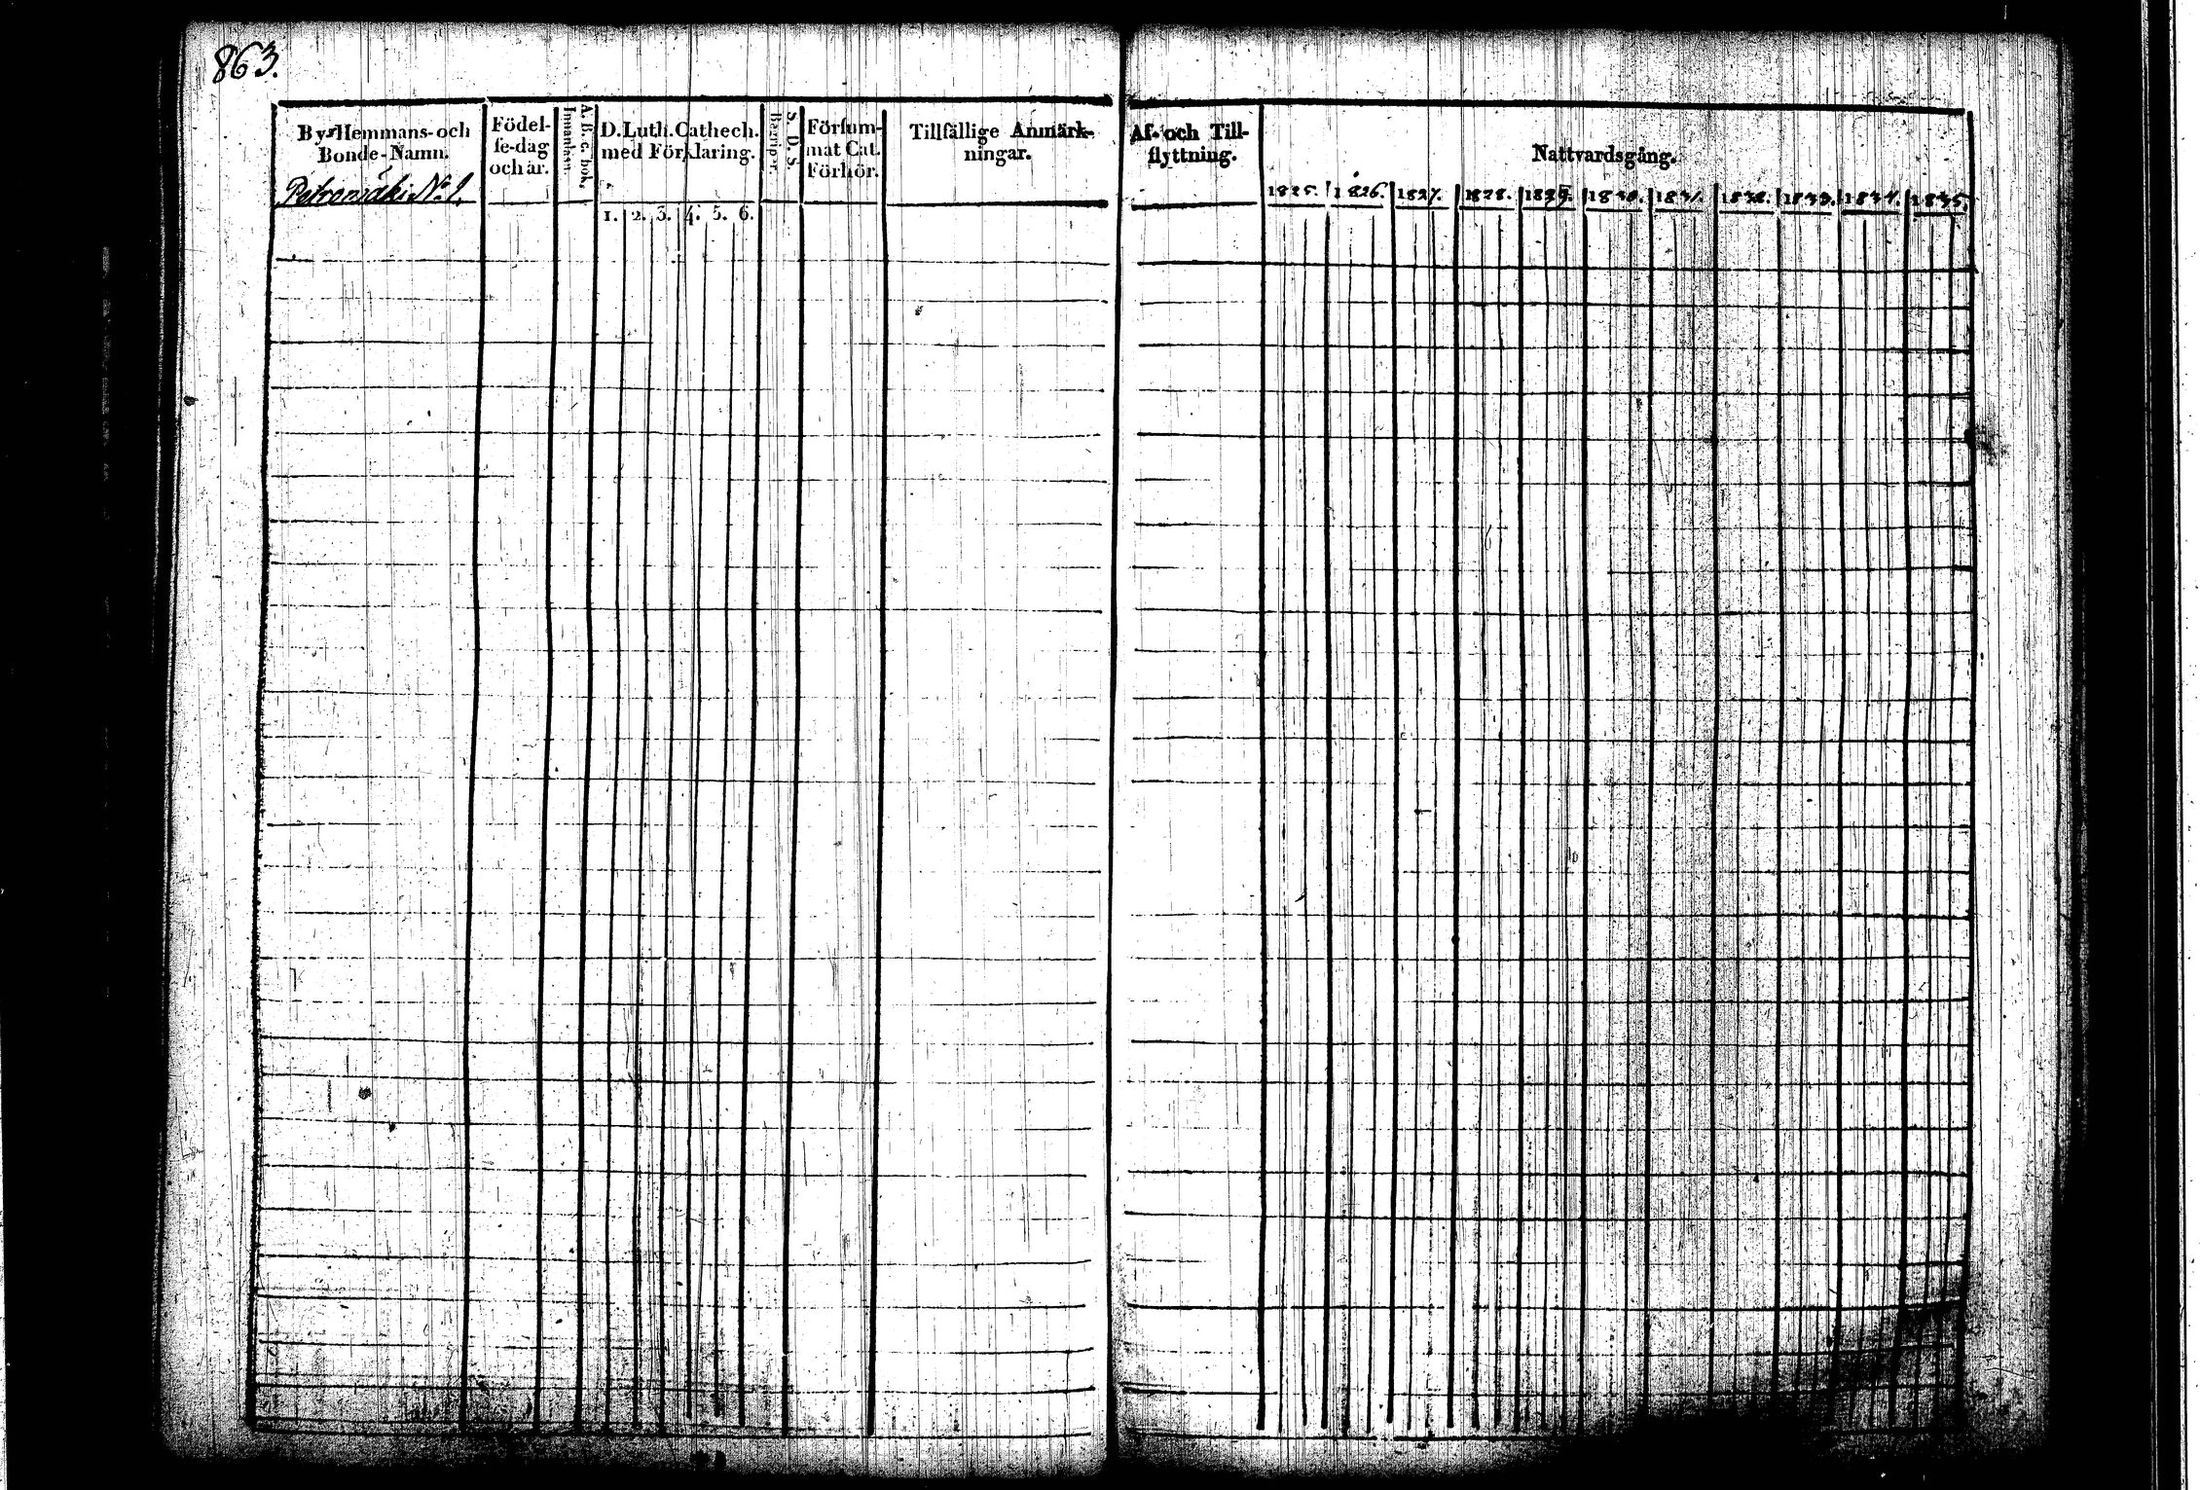 863.
By, Hemmans- och
Bonde-Namn.
Petromäki No 1.
Födel-
se-dag
och år.
A. B. c. bok,
Innanläsn.
D. Luth. Cathech.
med Förklaring.
1. 2. 3. 4. 5. 6.
S. D. S.
Begrip-r.
Försum-
mat Cat.
Förhör.
Tillfällige Anmärk-
ningar.
Af- och Till-
flyttning.
Nattvardsgång.
1825. 1826. 1827. 1828. 1829. 1830. 1831. 1832. 1833. 1834. 1835.